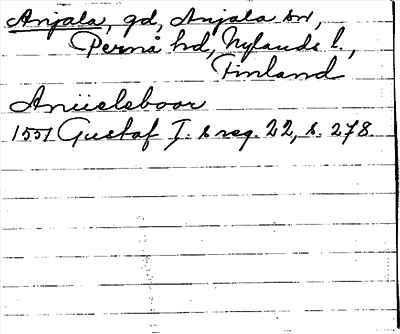 Anjala, gd, Anjala sn,
Pernå hd, Nylands l.,
Finland
Aniielsboor
1551 Gustaf I:s reg. 22, s. 278.